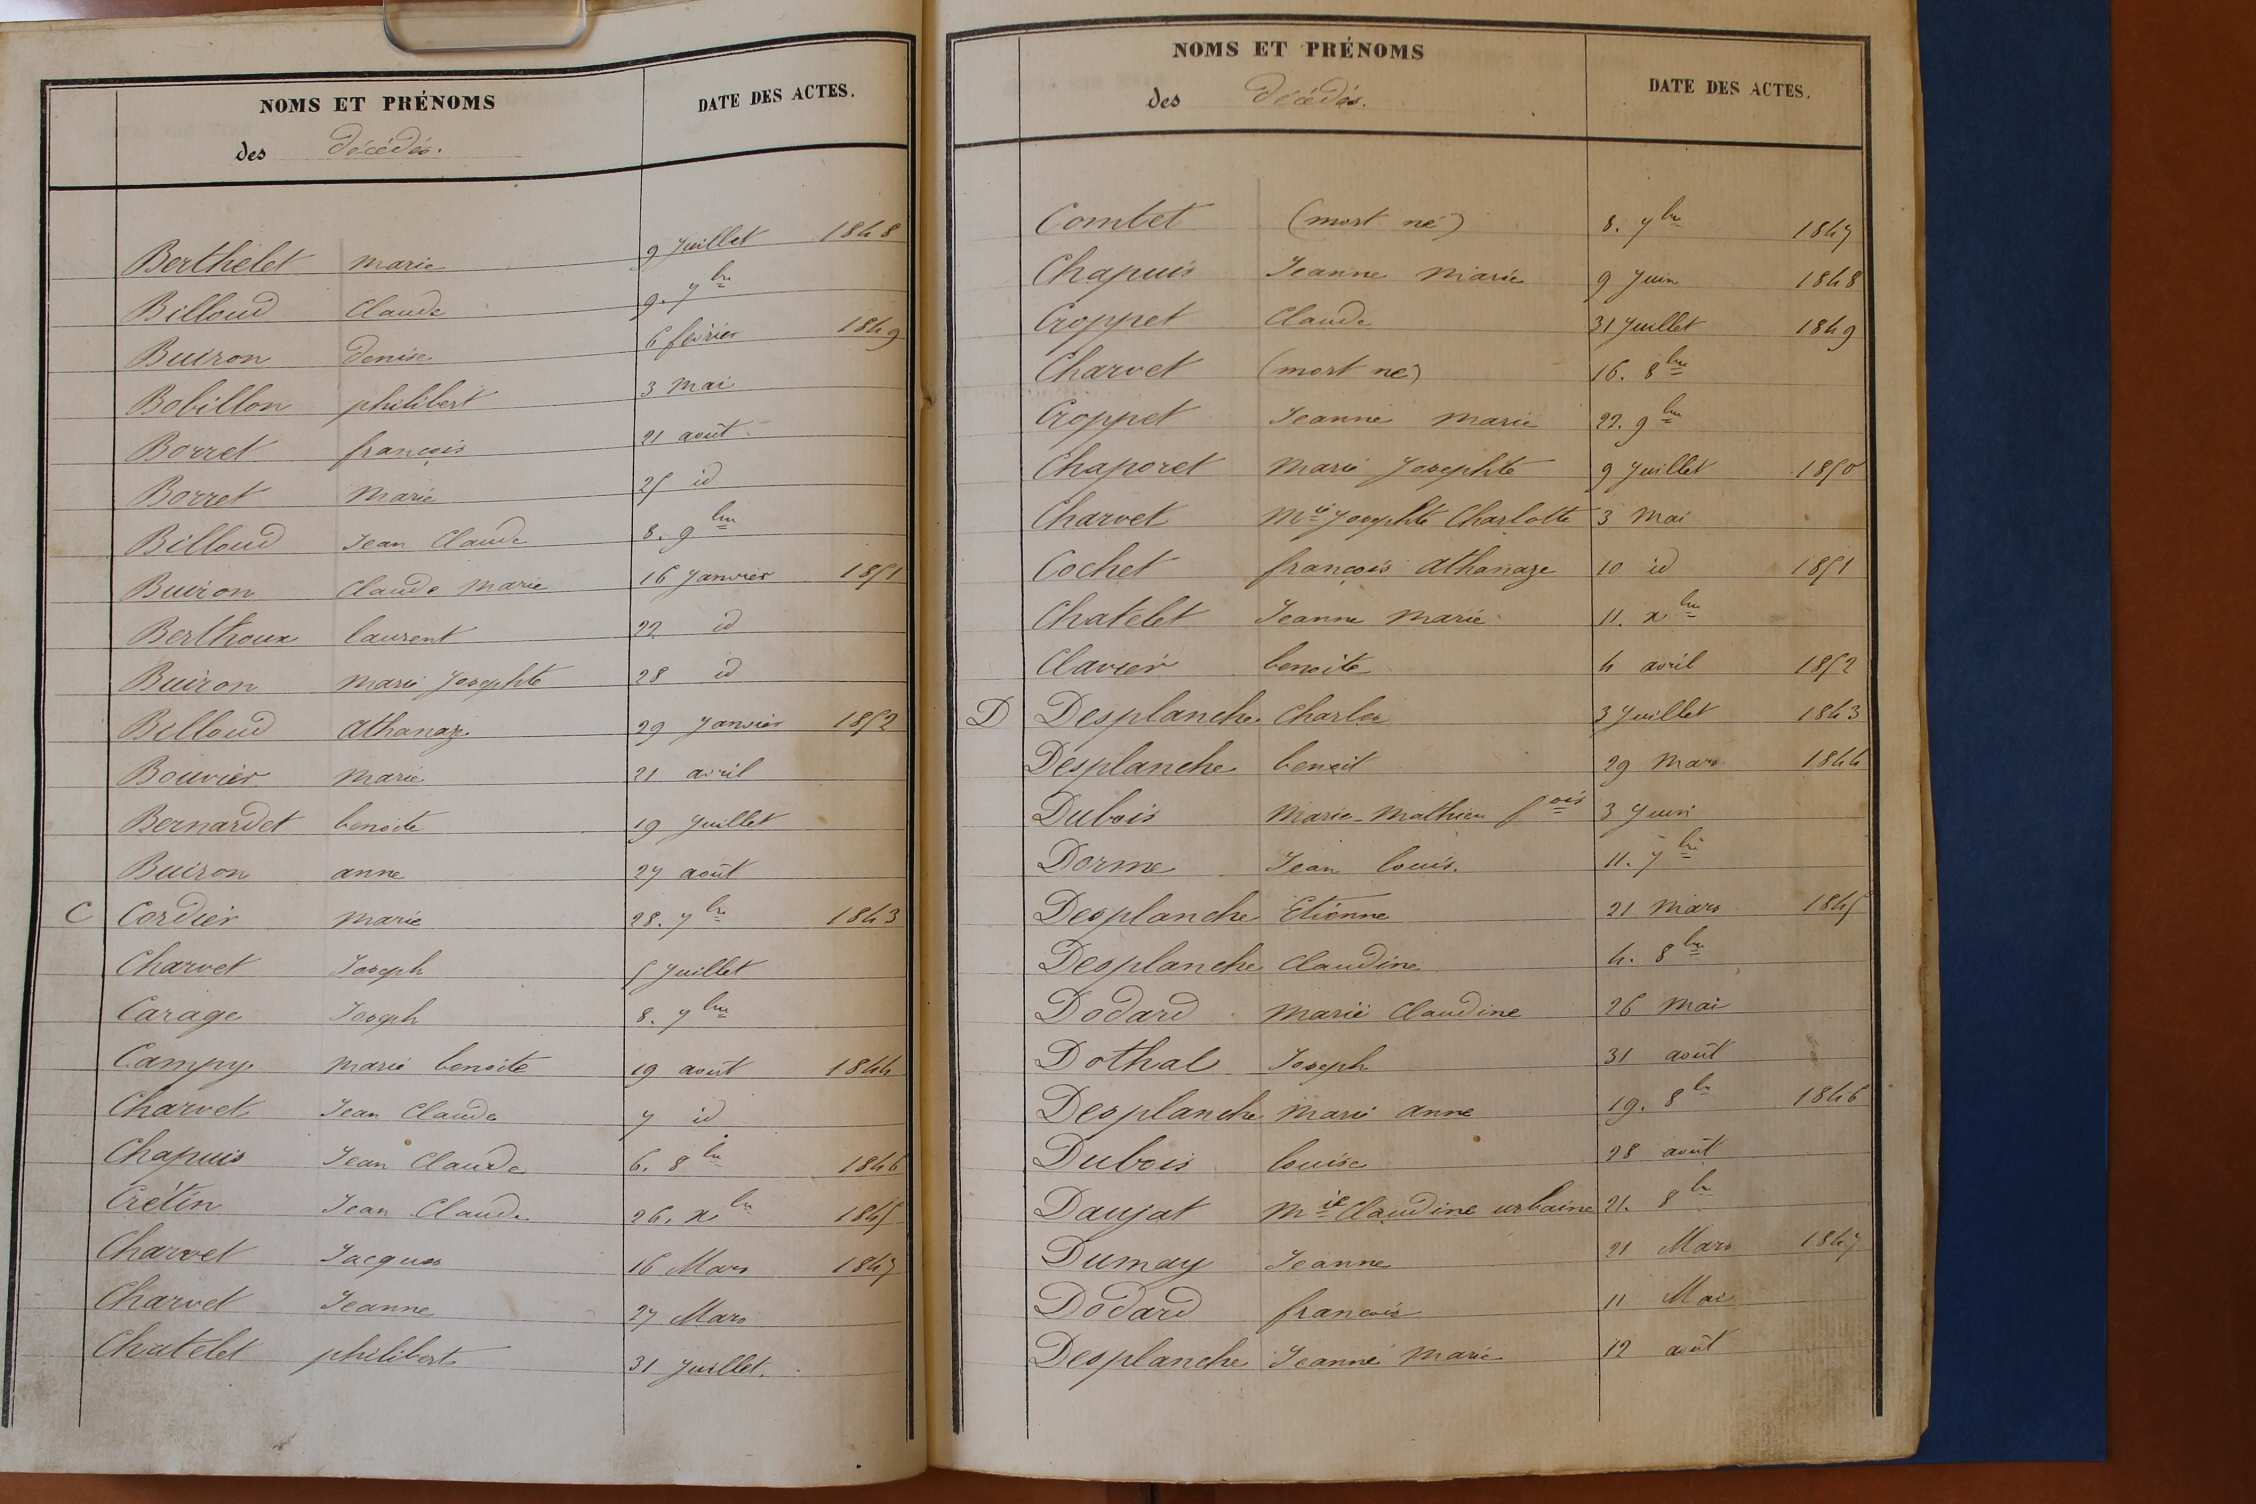 NOMS ET PRÉNOMS DATE DES ACTES.
des Décédés.
Berthelet marie 9 Juillet 1848
Billoud Claude 9. 7bre
Buiron denise 6 février 1849
Bobillon philibert 3 mai
Borret françois 21 août
Borret Marie 25 id
Billoud Jean Claude 8. 9bre
Buiron Claude Marie 16 Janvier 1851
Berthoux laurent 22 id
Buiron Marie Josephte 28 id
Billoud Athanaze 29 Janvier 1852
Bouvier Marie 21 avril
Bernardet benoite 19 Juillet
Buiron anne 27 août
C Cordier Marie 28. 7bre 1843
Charvet Joseph 5 Juillet
Carage Joseph 8. 7bre
Campy. Marie benoite 19 août 1844
Charvet Jean Claude 7 id
Chapuis Jean Claude 6. 8bre 1846
Crétin Jean Claude 26. xbre 1845
Charvet Jacques 16 Mars 1847
Charvet Jeanne 27 Mars
Chatelet philibert 31 Juillet.
NOMS ET PRÉNOMS DATE DES ACTES.
des Décédés.
Combet (mort né) 8. 7bre 1847
Chapuis Jeanne Marie 9 Juin 1848
Croppet Claude 31 Juillet 1849
Charvet (mort né) 16. 8bre
Croppet Jeanne Marie 22. 9bre
Chaporet Marie Josephte 9 Juillet 1850
Charvet Mie Josephte Charlotte 3 Mai
Cochet françois Athanaze 10 id 1851
Chatelet Jeanne Marie 11. xbre
Clavier benoite 4 avril 1852
D Desplanche Charles 3 Juillet 1843
Desplanche benoit 29 Mars 1844
Dubois Marie-Mathieu fois 3 Juin
Dorme Jean Louis. 11. 7bre
Desplanche Etienne 21 Mars 1845
Desplanche Claudine 4. 8bre
Dodard Marie Claudine 26 Mai
Dothal Joseph 31 août
Desplanche Marie anne 19. 8bre 1846
Dubois louise 28 août
Daujat Mie Claudine urbaine 21. 8bre
Dumay Jeanne 21 Mars 1847
Dodard françois 11 Mai
Desplanche Jeanne Marie 12 août